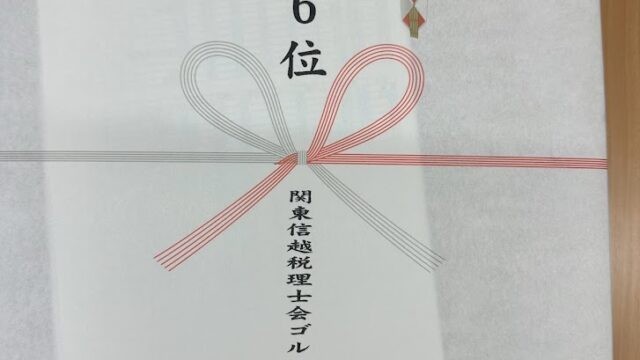 6位
関東信越税理士会ゴル